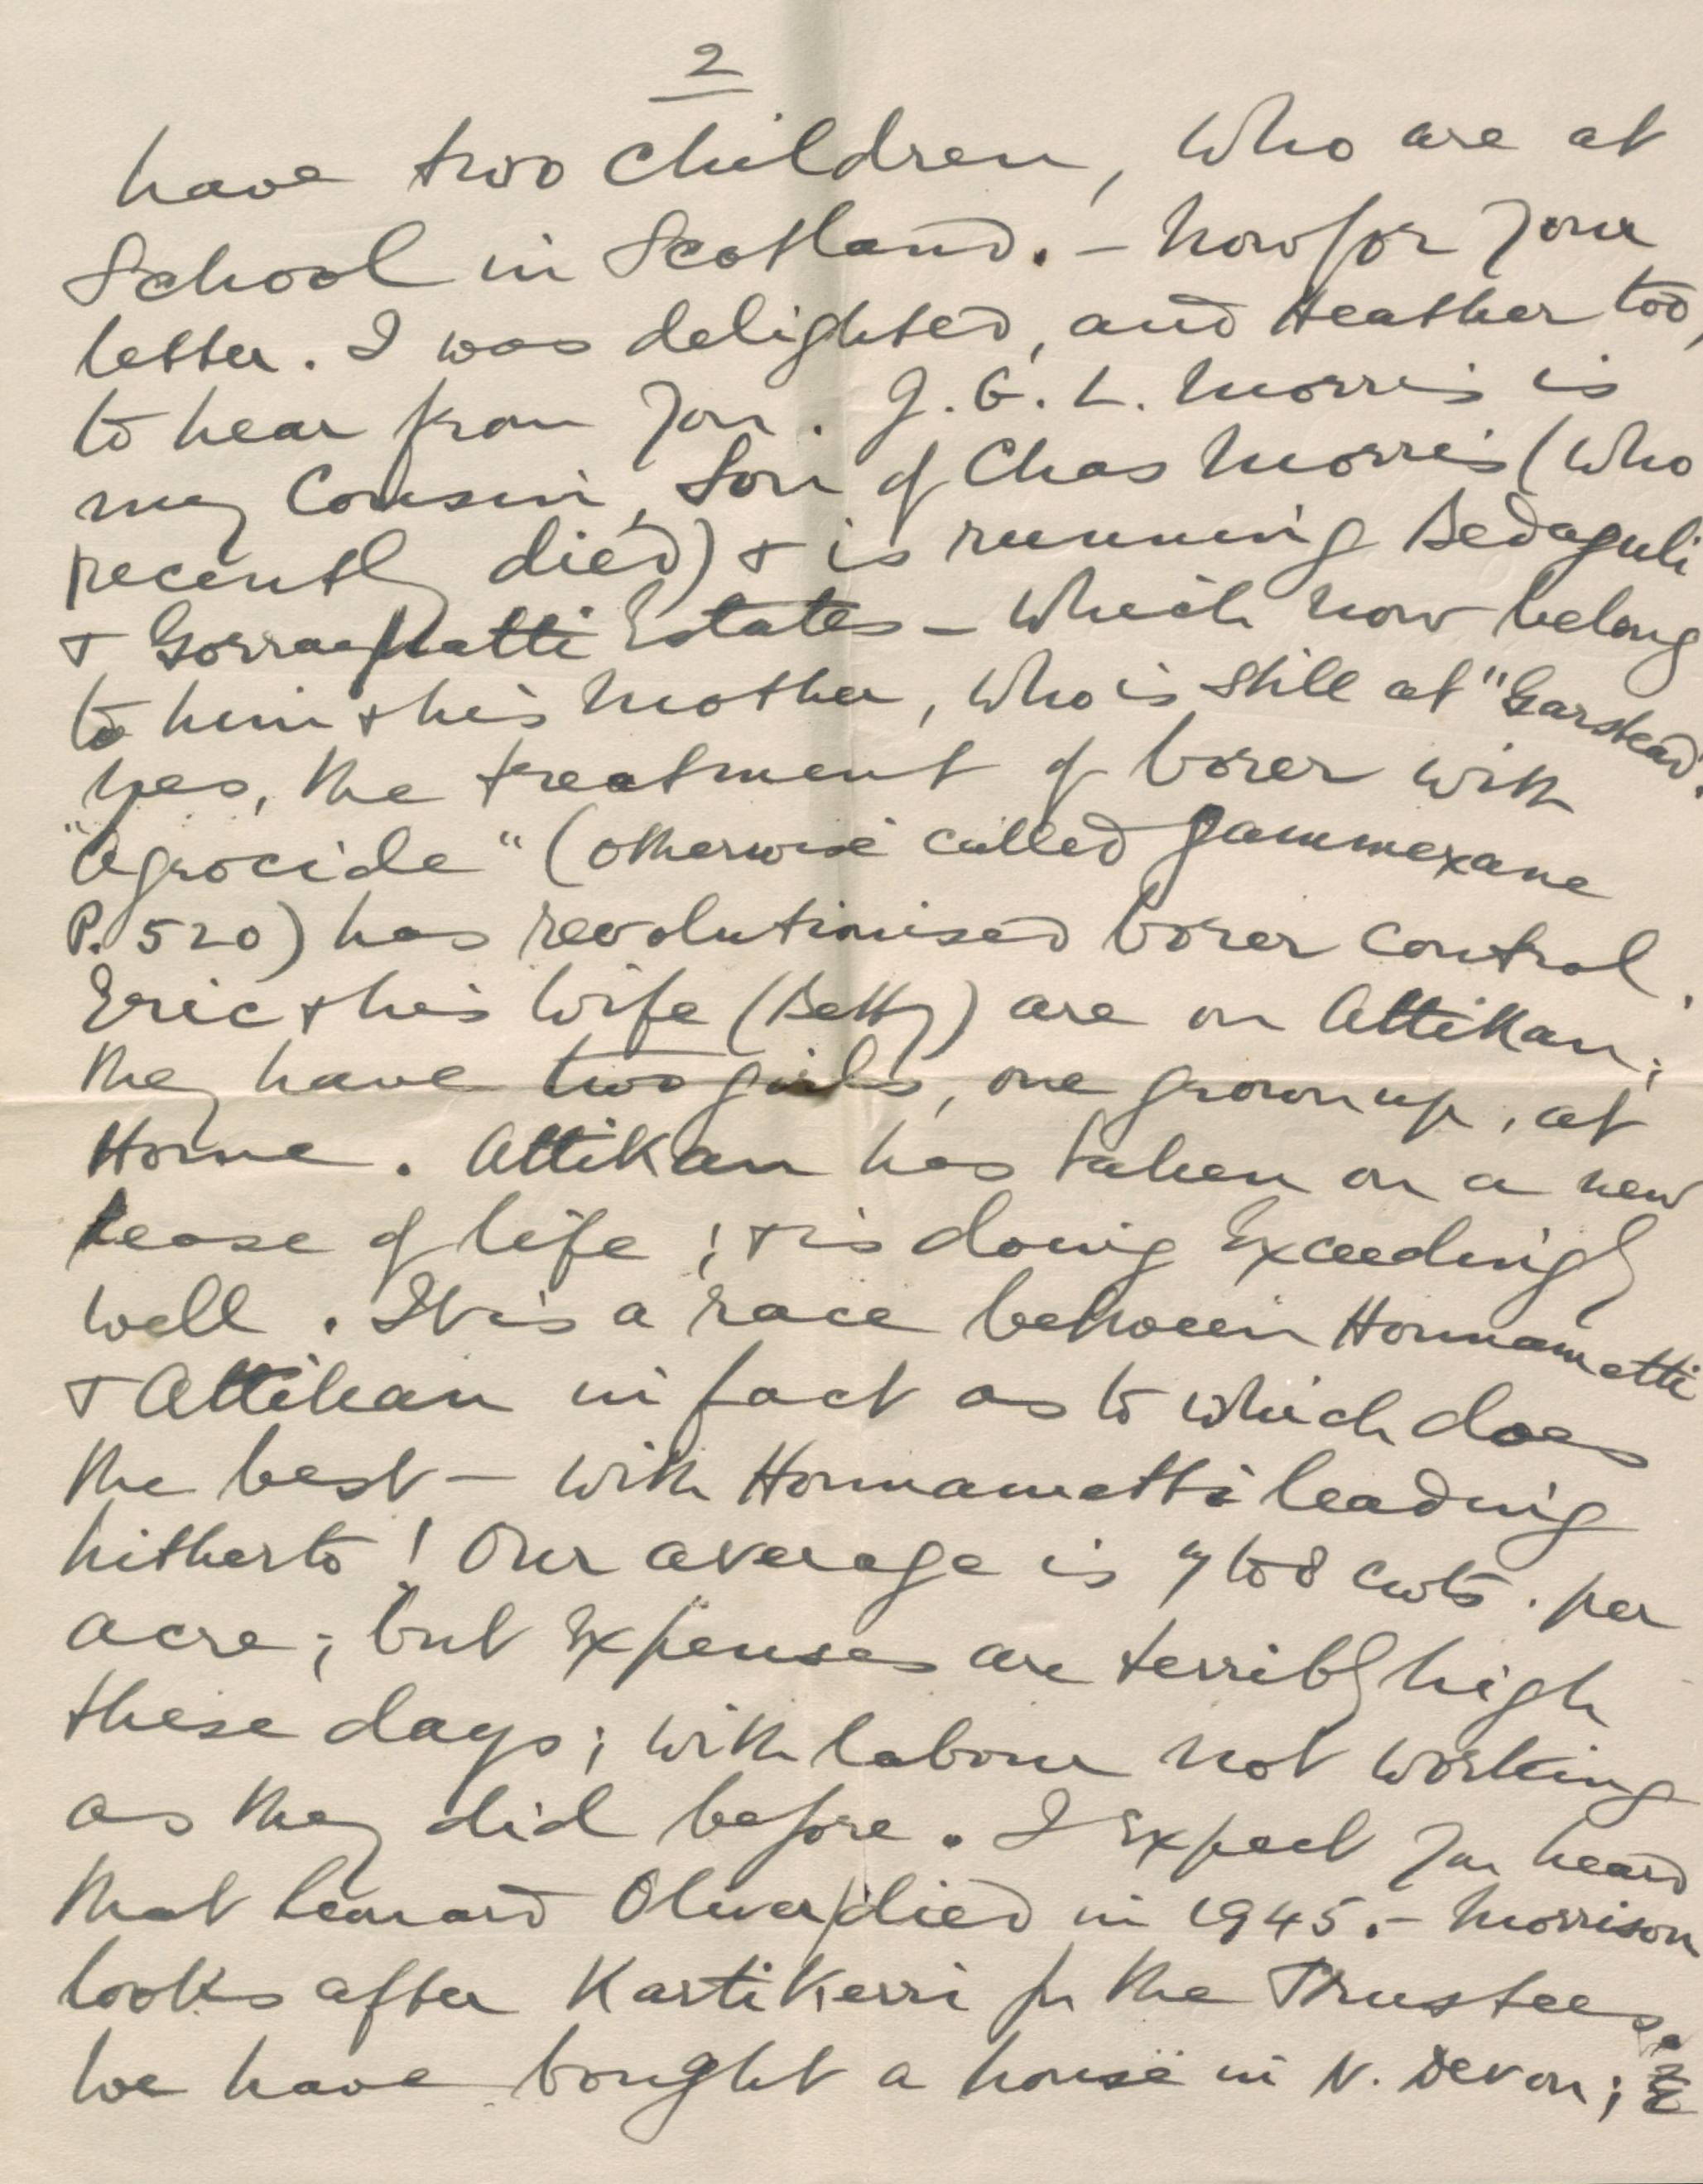 2
have two children, who are at
School in Scotland. - Now for your
letter. I was delighted, and Heather too,
to hear from you. J. G. L. Morris is
my Cousin, Son of Chas Morris (who
recently died) & is running Bedaguli
& Gorraghatti Estates - which now belong
to him & his Mother, who is still at "Garstead".
Yes, the treatment of borer with
"Agrocide" (otherwise called Gammexane
P. 520) has revolutionised borer control.
Eric & his Wife (Betty) are on Attikan;
they have two girls, one grown up, at
Home. Attikan has taken on a new
lease of life; & is doing Exceedingly
well. It is a race between Honnametti
& Attikan in fact as to which does
the best - with Honnametti leading
hitherto! Our average is 7 to 8 cwts. per
acre; but Expenses are terribly high
these days; with labour not working
as they did before. I Expect you heard
that Leonard Oliver died in 1945. - Morrison
looks after Kartikerri for the Trustees.
We have bought a house in N. Devon;